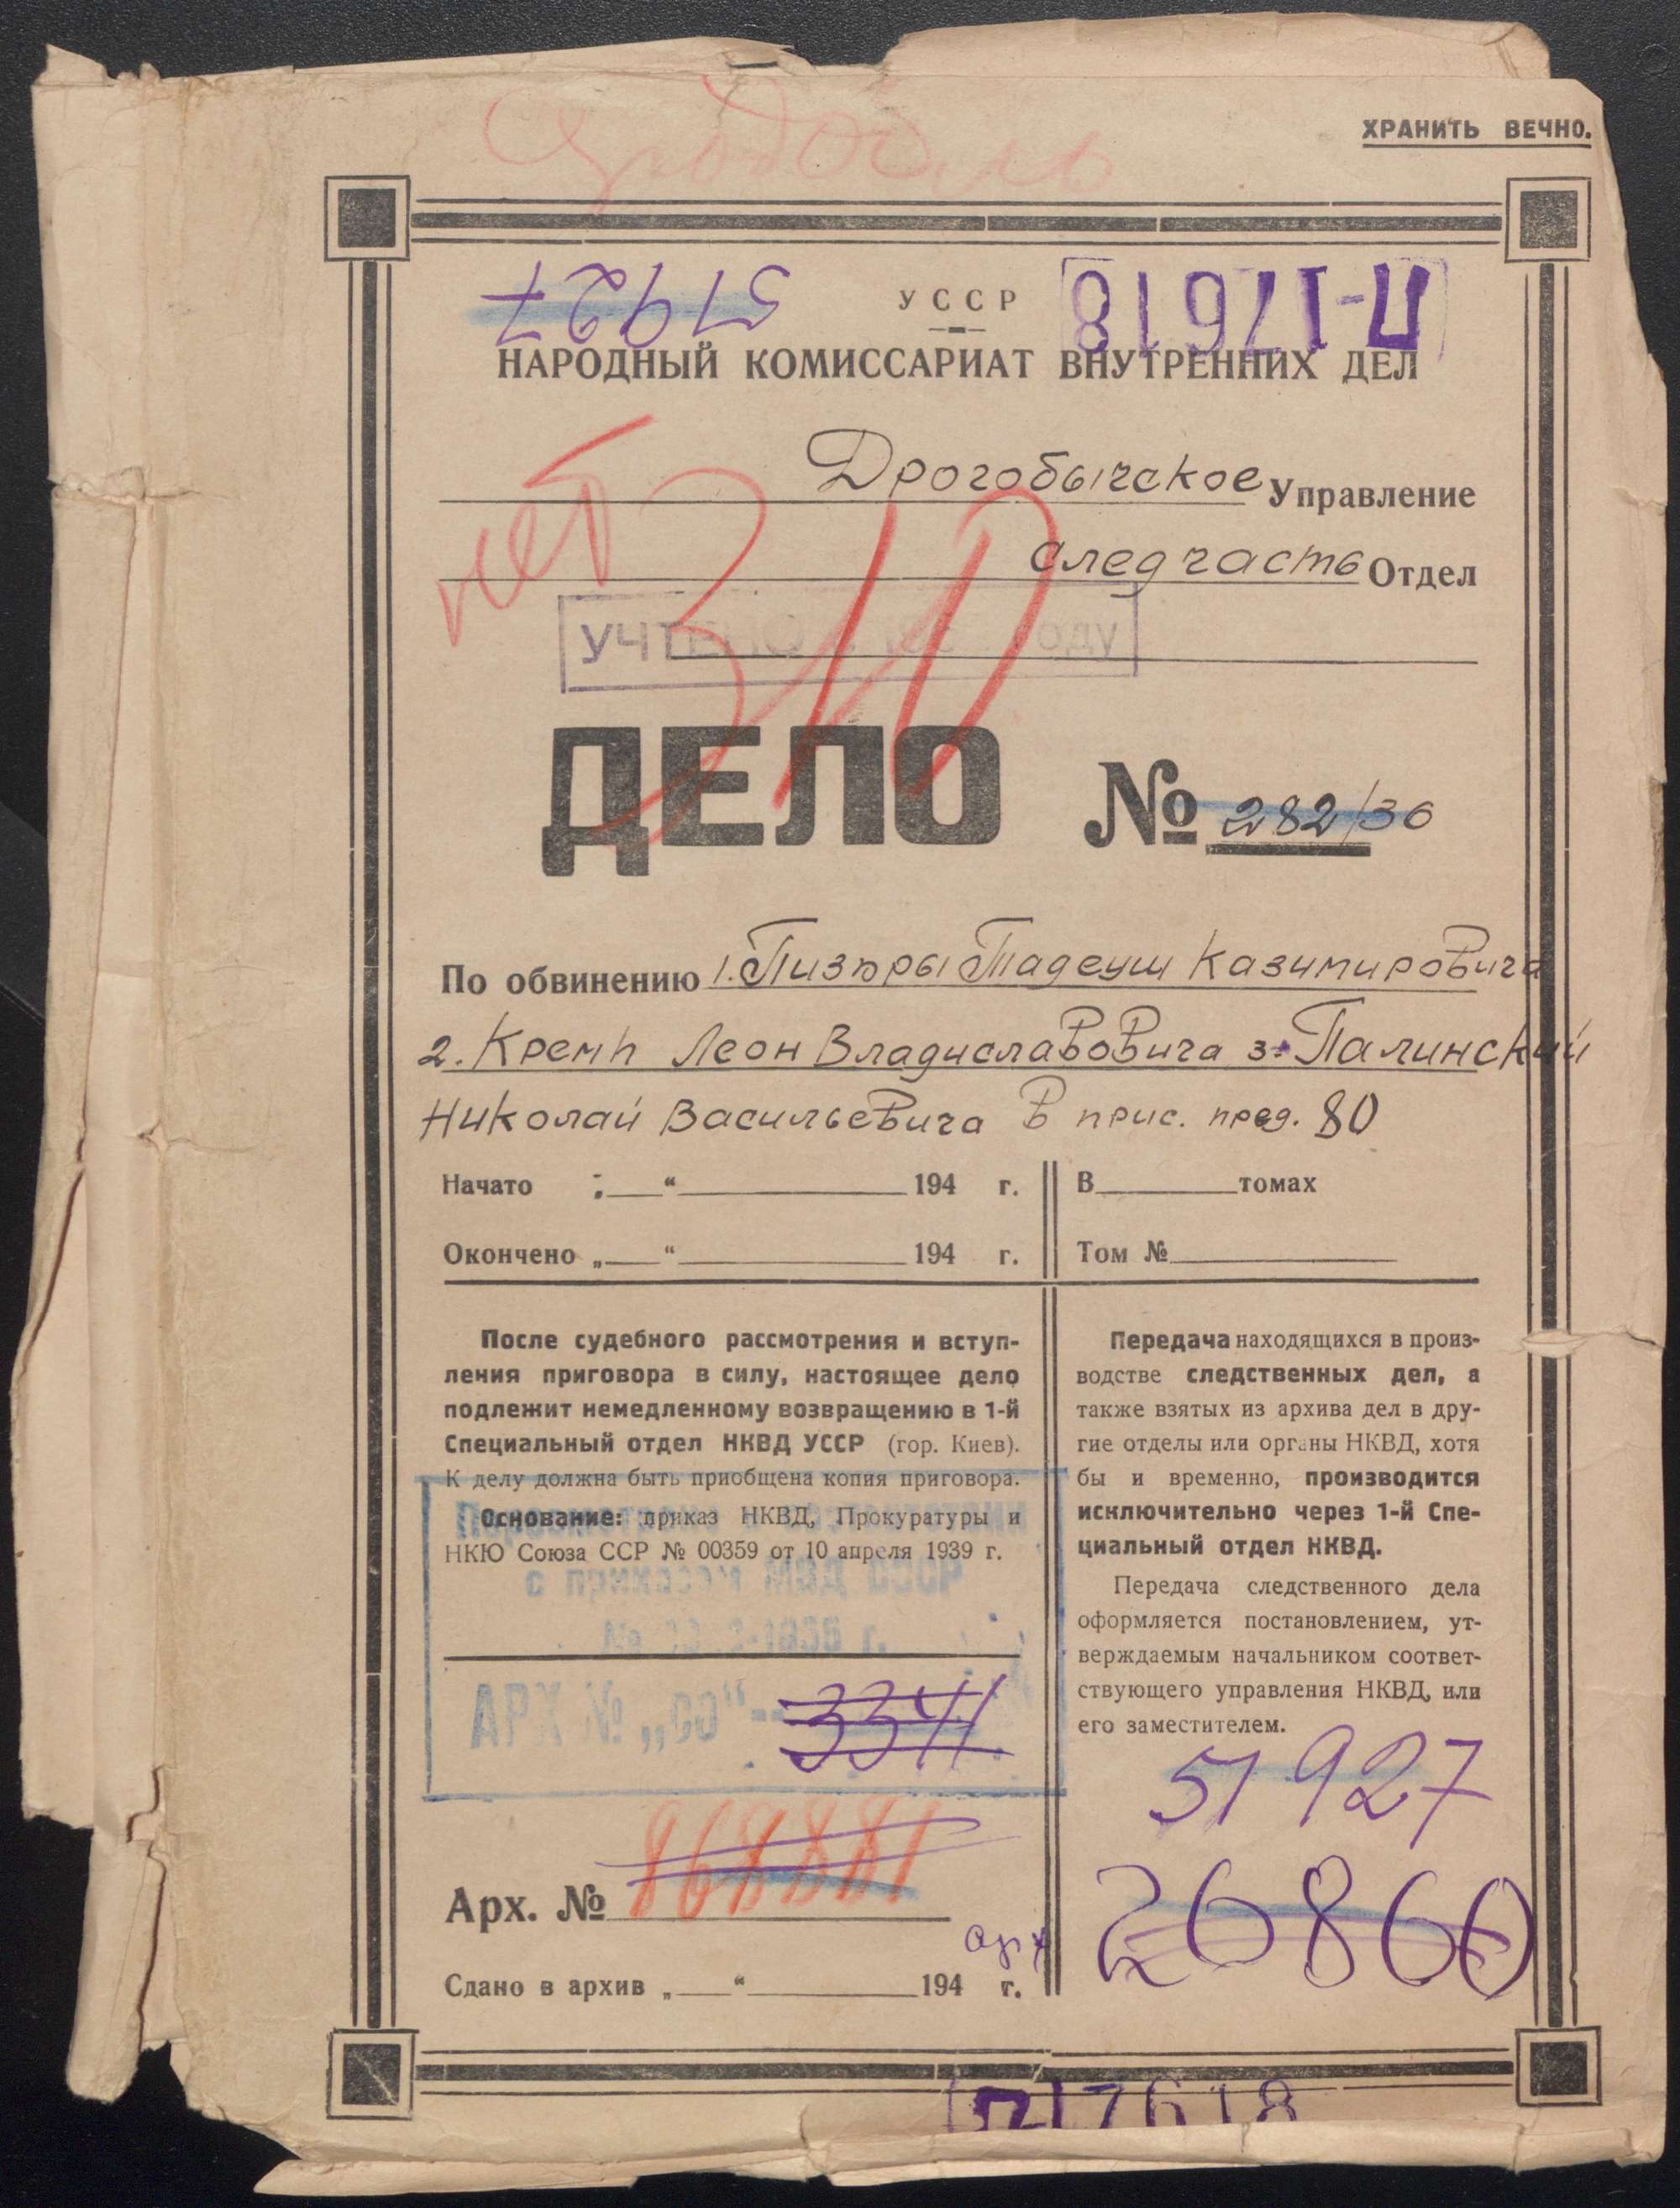 ХРАНИТЬ ВЕЧНО.
51927
УССР
П-17618
НАРОДНЫЙ КОМИССАРИАТ ВНУТРЕННИХ ДЕЛ
Дрогобычское Управление
нет
310
следчасть Отдел
УЧТЕНО году
ДЕЛО № 282/36
По обвинению 1. Пизюры Тадеуш Казимировича
2. Кремп Леон Владиславовича 3. Палинский
Николай Васильевича В прис. пред. 80
Начато „ “ 194 г.
В томах
Окончено „ “ 194 г.
Том №
После судебного рассмотрения и вступ-
ления приговора в силу, настоящее дело
подлежит немедленному возвращению в 1-й
Специальный отдел НКВД УССР (гор. Киев).
К делу должна быть приобщена копия приговора.
Основание: приказ НКВД, Прокуратуры и
НКЮ Союза ССР № 00359 от 10 апреля 1939 г.
с приказом МВД СССР
АРХ № „СО“ 3341
Арх. № 868881
арх
Сдано в архив „ “ 194 г.
Передача находящихся в произ-
водстве следственных дел, а
также взятых из архива дел в дру-
гие отделы или органы НКВД, хотя
бы и временно, производится
исключительно через 1-й Спе-
циальный отдел НКВД.
Передача следственного дела
оформляется постановлением, ут-
верждаемым начальником соответ-
ствующего управления НКВД, или
его заместителем.
51927
26860
П17618